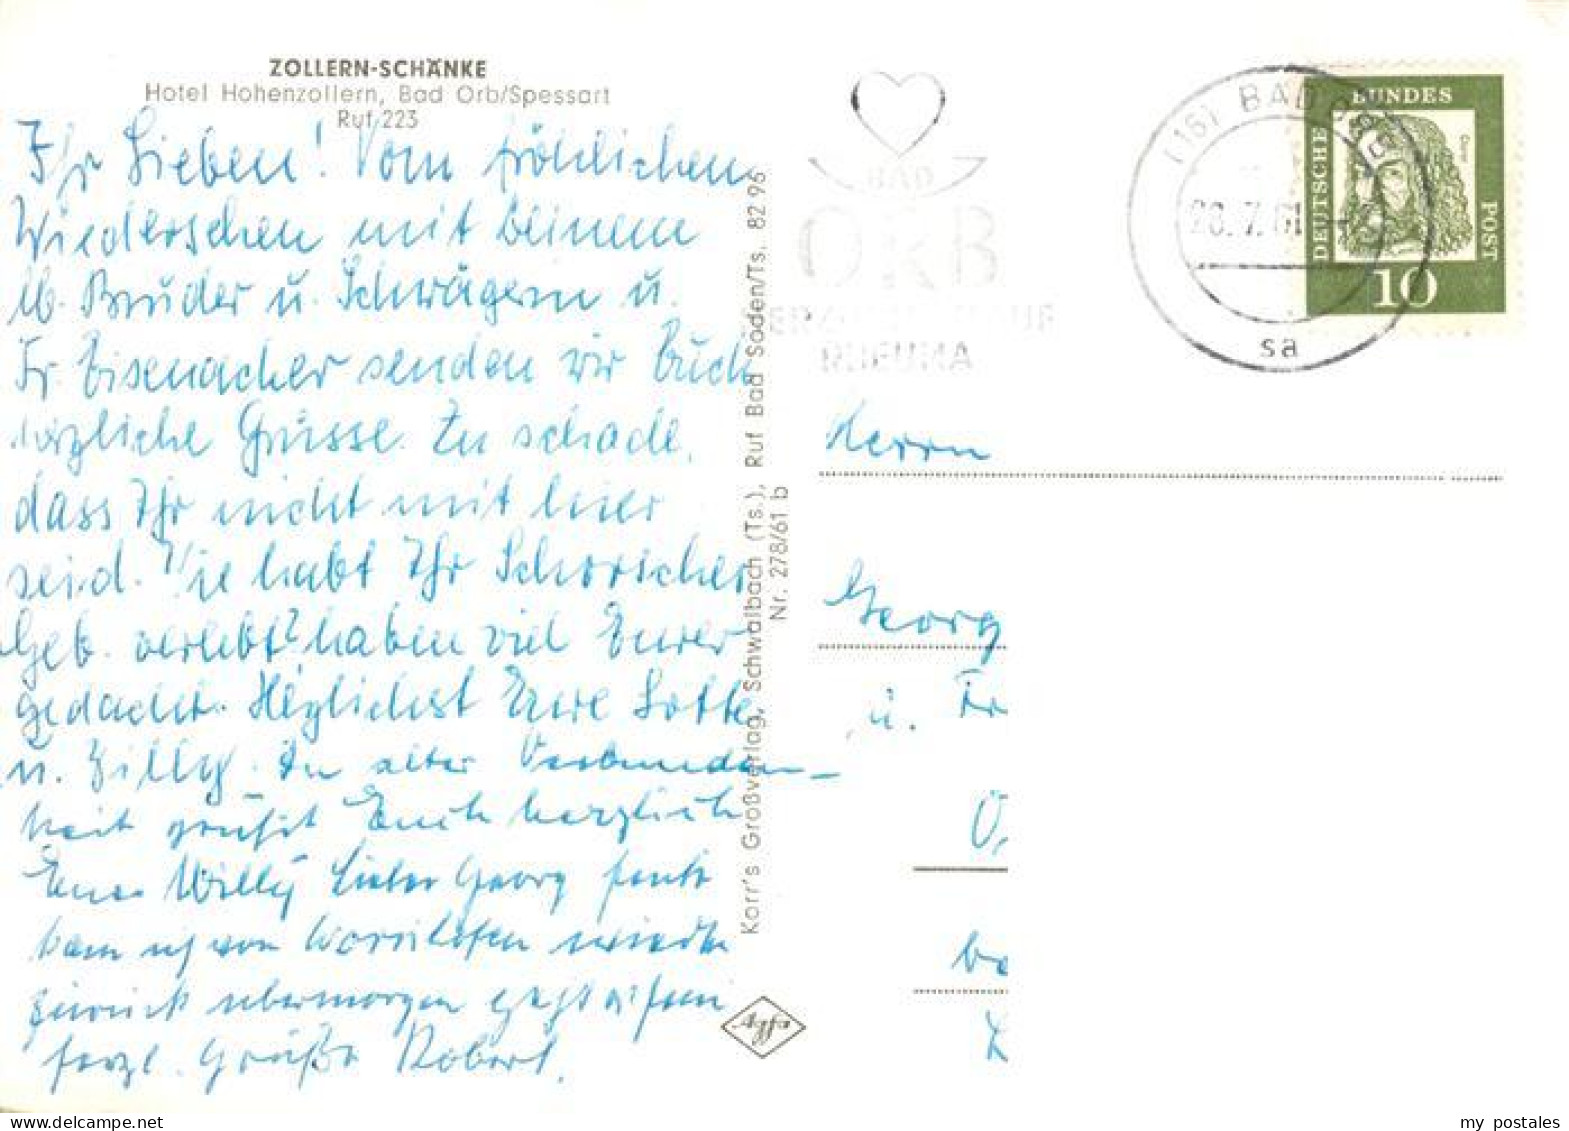 ZOLLERN-SCHÄNKE
Hotel Hohenzollern, Bad Orb/Spessart
Ruf 223
Ihr Lieben! Vom fröhlichen
Wiedersehen mit meinem
lb. Bruder u. Schwägerin u.
Fr. Eisenacher senden wir Euch
herzliche Grüsse. Zu schade,
dass Ihr nicht mit hier
seid. Wie habt Ihr Schorschel
Geb. verlebt? haben viel Eurer
gedacht. Herzlichst Eure Lotte
u. Billy. In alter Verbunden-
heit grüßt Euch herzlich
Euer Willy Lieber Georg
kam ich von wieder
zurück übermorgen
herzl. Grüße Robert.
Korr's Großverlag, Schwalbach (Ts.), Ruf Bad Soden/Ts. 82 96
Nr. 278/61 b
Agfa
BAD
ORB
RHEUMA
(16) BAD ORB
28.7.61
sa
DEUTSCHE
BUNDES
POST
10
Herrn
Georg
u. Fr
my postales